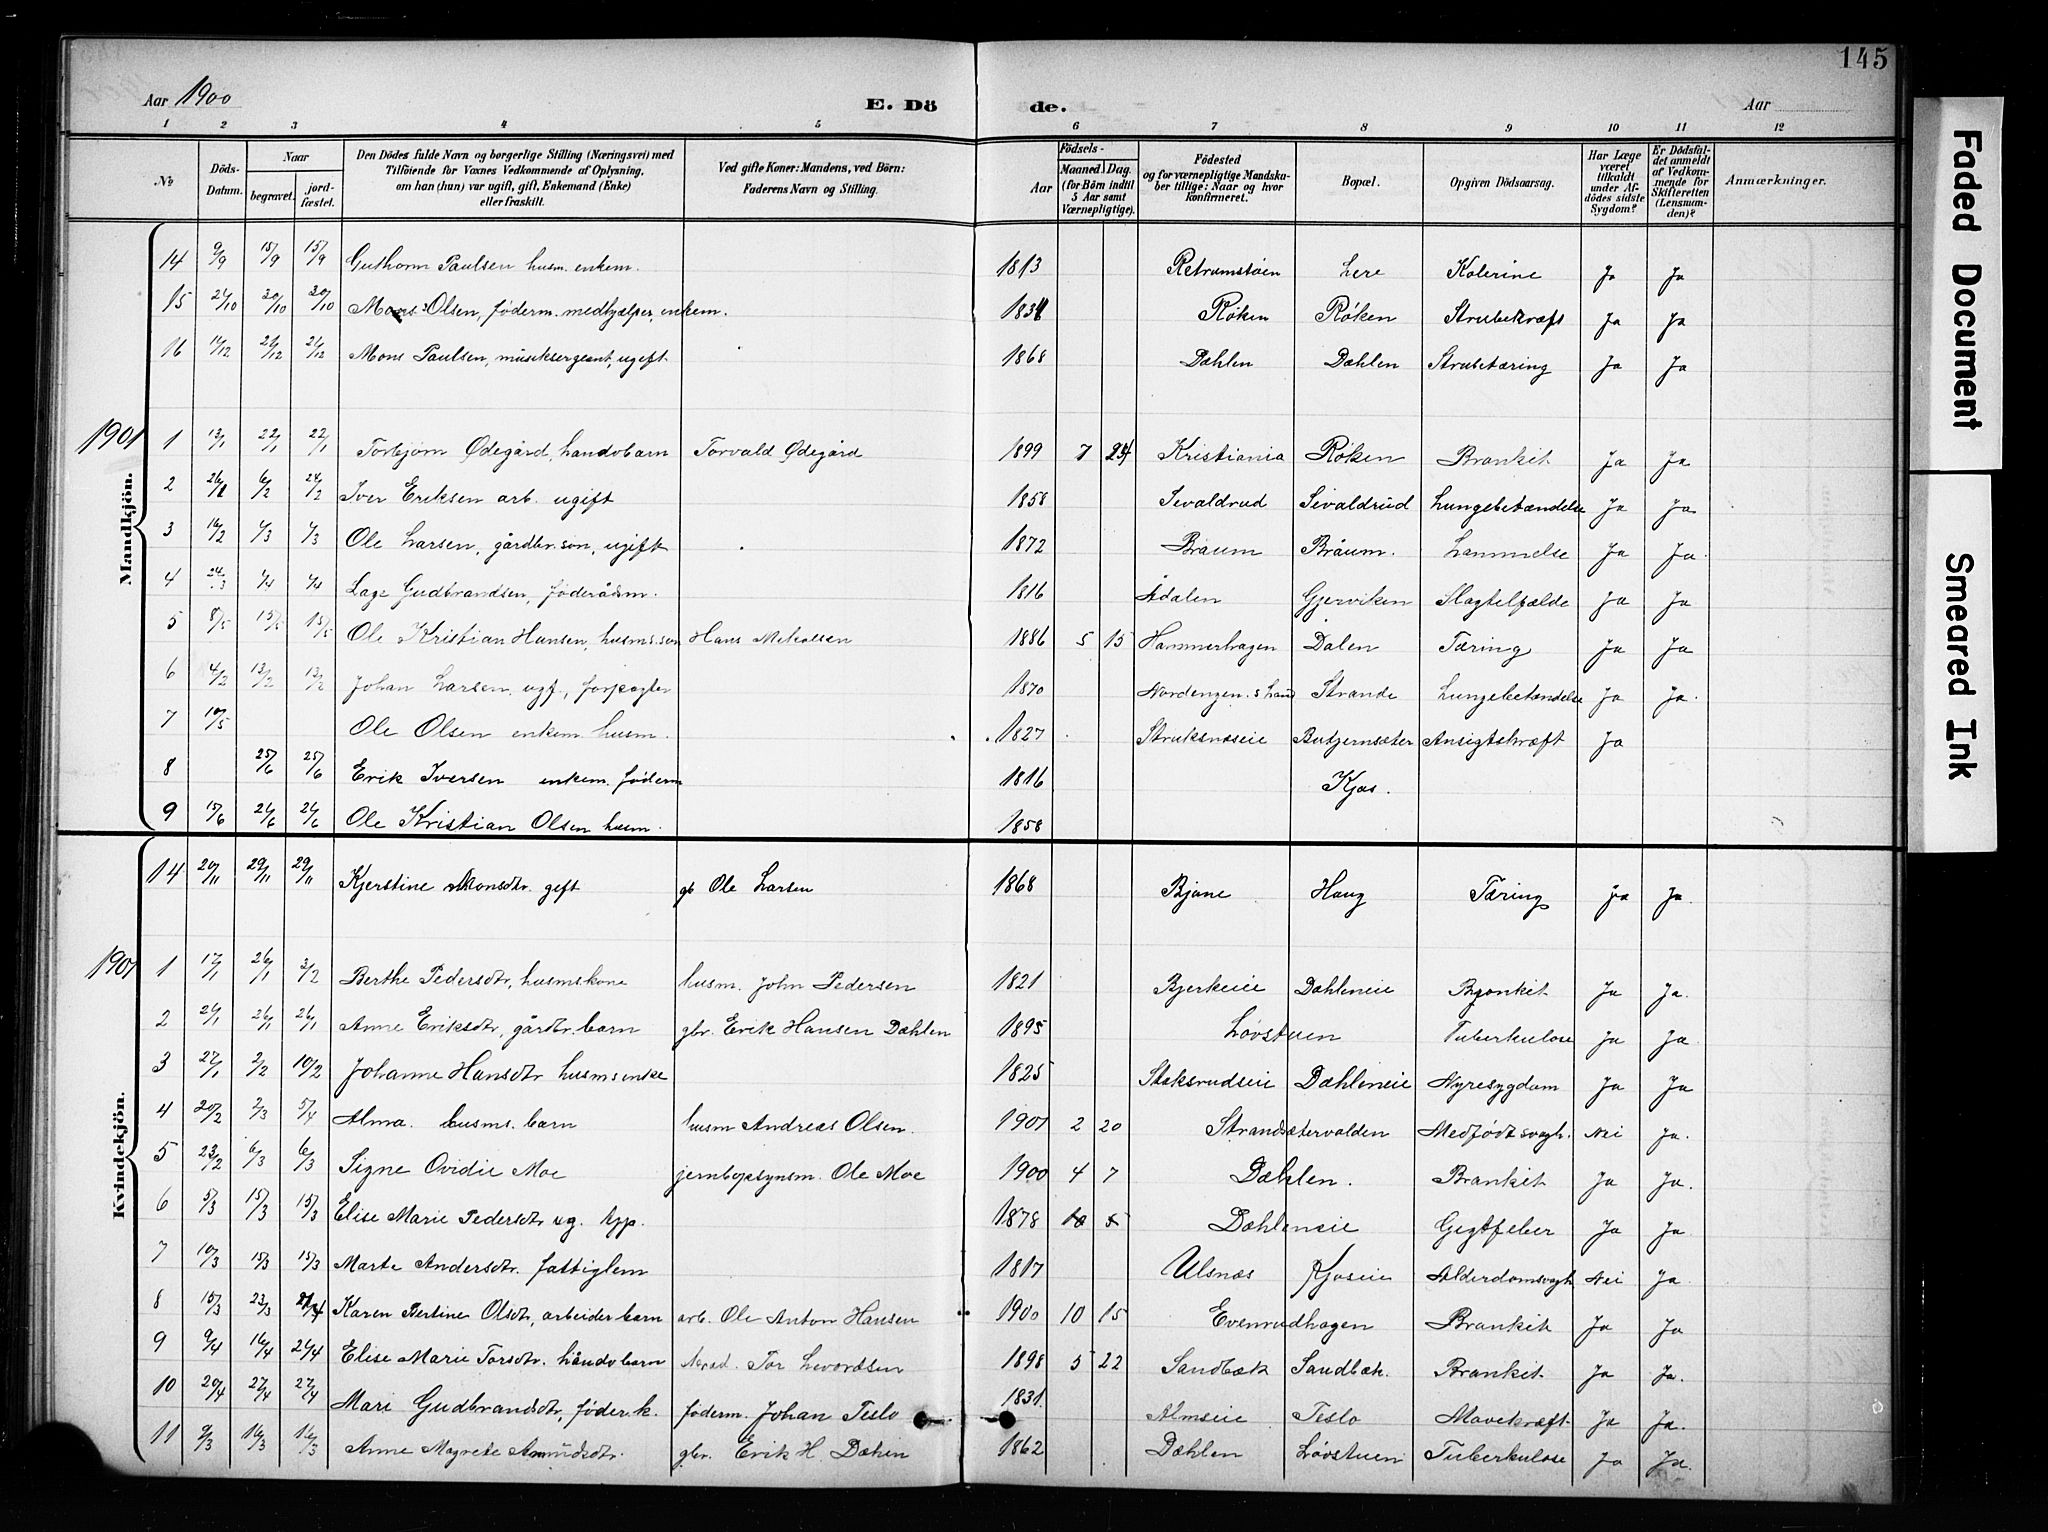 145
Aar 1900
E. Dö de.
Aar
1 2 3 4 5 6 7 8 9 10 11 12
No
Döds-Datum.
Naar
begravet.
jord-fæstet.
Den Dödes fulde Navn og borgerlige Stilling (Næringsvei) med
Tilföiende for Voxnes Vedkommende af Oplysning,
om han (hun) var ugift, gift, Enkemand (Enke)
eller fraskilt.
Ved gifte Koner: Mandens, ved Börn:
Faderens Navn og Stilling.
Födsels-
Aar
Maaned. Dag.
(for Börn indtil
5 Aar samt
Værnepligtige).
Födested
og for værnepligtige Mandska-
ber tillige: Naar og hvor
konfirmeret.
Bopæl.
Opgiven Dödsaarsag.
Har Læge
været
tilkaldt
under Af-
dödes sidste
Sygdom?
Er Dödsfal-
det anmeldt
af Vedkom-
mende for
Skifteretten
(Lensman-
den)?
Anmærkninger.
Mandkjön.
14 9/9 15/9 15/9 Guthorm Paulsen husm. enkem. 1813 Retrumstøen Lere Kolerine Ja Ja
15 21/10 30/10 30/10 Mons Olsen, føderm. medhjælper, enkem. 1831 Røken Røken Strubekræft Ja Ja
16 14/12 21/12 21/12 Mons Paulsen, musiksergeant, ugift 1868 Dæhlen Dæhlen Strubetæring Ja Ja
1901
1 13/1 22/1 22/1 Torbjørn Ødegård, handv.barn Torvald Ødegård 1899 7 24 Kristiania Røken Brankit Ja Ja
2 26/1 6/2 24/2 Iver Eriksen arb. ugift 1858 Sevaldrud Sivaldrud Lungebetændelse Ja Ja
3 16/2 4/3 4/3 Ole Larsen, gårdbr. søn, ugift 1872 Braum Bråum. Lammelse Ja Ja.
4 24/3 4/4 4/4 Lage Gudbrandsen, føderådsm. 1816 Ådalen Gjerviken Slagtilfælde Ja Ja
5 8/5 15/5 15/5 Ole Kristian Hansen, husms. søn Hans Mikalsen 1886 5 15 Hammerhagen Dalen Tæring Ja Ja
6 4/2 13/2 13/2 Johan Larsen, ugf., forpagter 1870 Nordengen. S Land Strande Lungebetændelse Ja Ja.
7 10/5 Ole Olsen enkem. husm. 1827 Struksnæseie Butjernsæter Ansigtskræft Ja
8 25/6 25/6 Erik Iversen enkem. føderm 1816 Kjos.
9 15/6 21/6 21/6 Ole Kristian Olsen husm. 1858
Kvindekjön.
14 20/11 29/11 29/11 Kjerstine Monsdtr. gift gb Ole Larsen 1868 Bjone Haug Tæring Ja Ja.
1901
1 17/1 26/1 3/2 Berthe Pedersdtr, husmskone husm. John Pedersen 1821 Bjerkeeie Dæhleneie Bronkit Ja Ja.
2 21/1 26/1 26/1 Anne Eriksdtr, gårdbr. barn gbr. Erik Hansen Dæhlen 1895 Løvstuen Tuberkulose Ja Ja.
3 27/1 2/2 10/2 Johanne Hansdtr husmsenke 1825 Staksrudseie Dæhleneie Nyresygdom Ja Ja
4 20/2 2/3 5/4 Alma. husms. barn husm Andreas Olsen. 1901 2 20 Strandsætervolden Medfødt svagh. Nei Ja.
5 23/2 6/3 6/3 Signe Ovidie Moe jernbopsynsm. Ole Moe 1900 4 7 Dæhlen. Brankit Ja Ja.
6 5/3 15/3 15/3 Elise Marie Pedersdtr ug. 1878 10 5 Dæhleneie Gigtfeber Ja Ja
7 10/3 15/3 15/3 Marte Andersdtr. fattiglem 1817 Ulsnæs Kjoseie Alderdomsvagh Nei Ja
8 15/3 23/3 21/4 Karen Bertine Olsdtr, arbeiderbarn arb. Ole Anton Hansen 1900 10 15 Evenrudhagen Brankit Ja Ja
9 9/4 16/4 21/4 Elise Marie Torsdtr. håndv.barn Tor Levordsen 1898 5 22 Sandbæk Sandbæk. Brankit Ja Ja.
10 20/4 27/4 27/4 Mari Gudbrandsdtr, føder.k. føderm. Johan Teslo 1831 Almseie Teslo Mavekræft Ja Ja.
11 9/3 16/3 16/3 Anne Magrete Amundsdtr. gbr. Erik H. Dæhlin 1862 Dæhlen Løvstuen Tuberkulose Ja Ja.
Faded Document
Smeared Ink